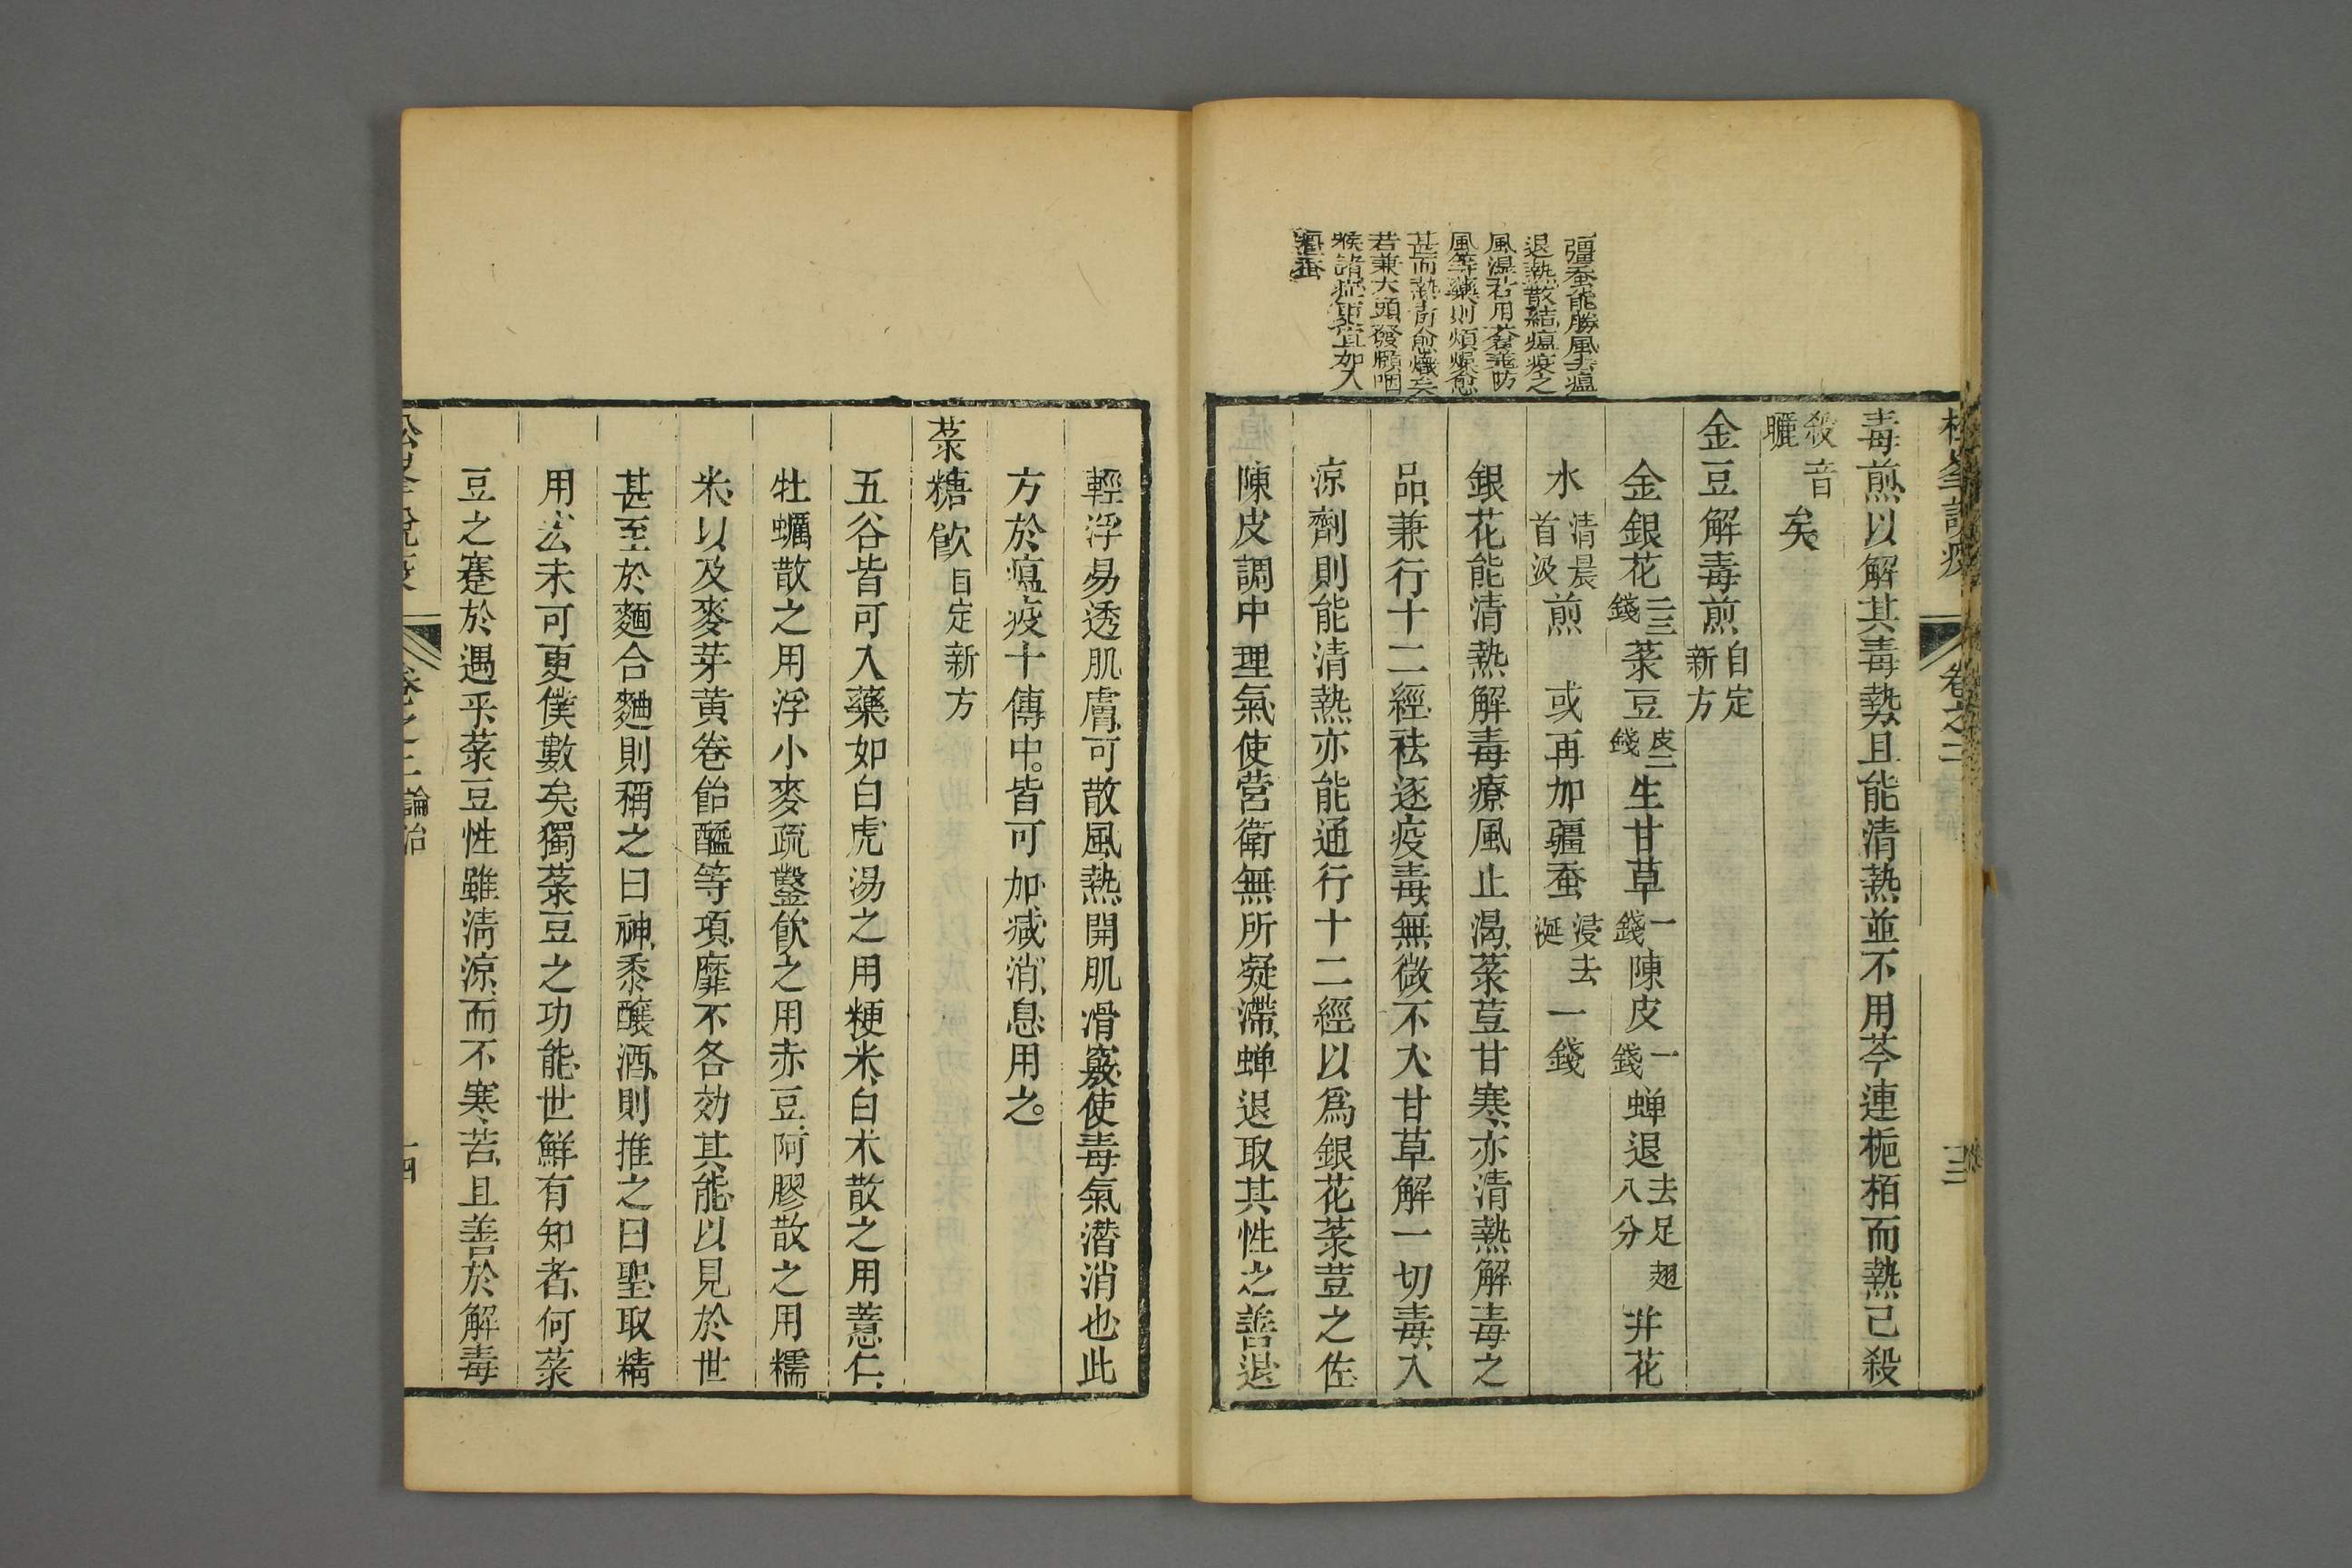 毒煎以解其毒勢且能清熱並不用芩連梔栢而熱已殺
殺音曬矣
金豆解毒煎自定新方
金銀花二三錢菉豆皮二錢生甘草一錢陳皮一錢蟬退去足翅八分井花
水清晨首汲煎 或再加疆蚕浸去涎一錢
銀花能清熱解毒療風止渴菉荳甘寒亦清熱解毒之
品兼行十二經祛逐疫毒無微不入甘草解一切毒入
涼劑則能清熱亦能通行十二經以為銀花菉荳之佐
陳皮調中理氣使營衛無所凝滯蟬退取其性之善退
疆蚕能勝風去瘟
退熱散結瘟疫之
風濕若用蒼羌防
風等藥則煩燥愈
甚而熱有愈熾矣
若兼大頭發頤咽
喉諸症更宜加入
疆蚕
輕浮易透肌膚可散風熱開肌滑竅使毒氣潛消也此
方於瘟疫十傳中。皆可加减消息用之。
菉糖飲自定新方
五谷皆可入藥如白虎湯之用粳米白朮散之用薏仁
牡蠣散之用浮小麥疏鑿飲之用赤豆阿膠散之用糯
米以及麥芽黄卷飴醯等項靡不各効其能以見於世
甚至於麵合麯則稱之曰神黍釀酒則推之曰聖取精
用宏未可更僕數矣獨菉豆之功能世鮮有知者何菉
豆之蹇於遇乎菉豆性雖清涼而不寒苦且善於解毒
卷之二 論治